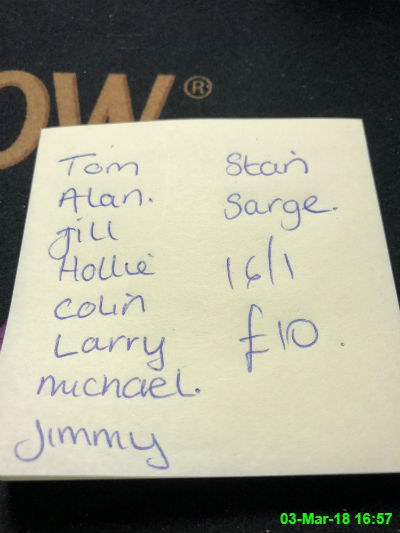 OW®
Tom
Alan.
Jill
Hollie
Colin
Larry
michael.
Jimmy
Stan
Sarge.
16/1
£10.
03-Mar-18 16:57